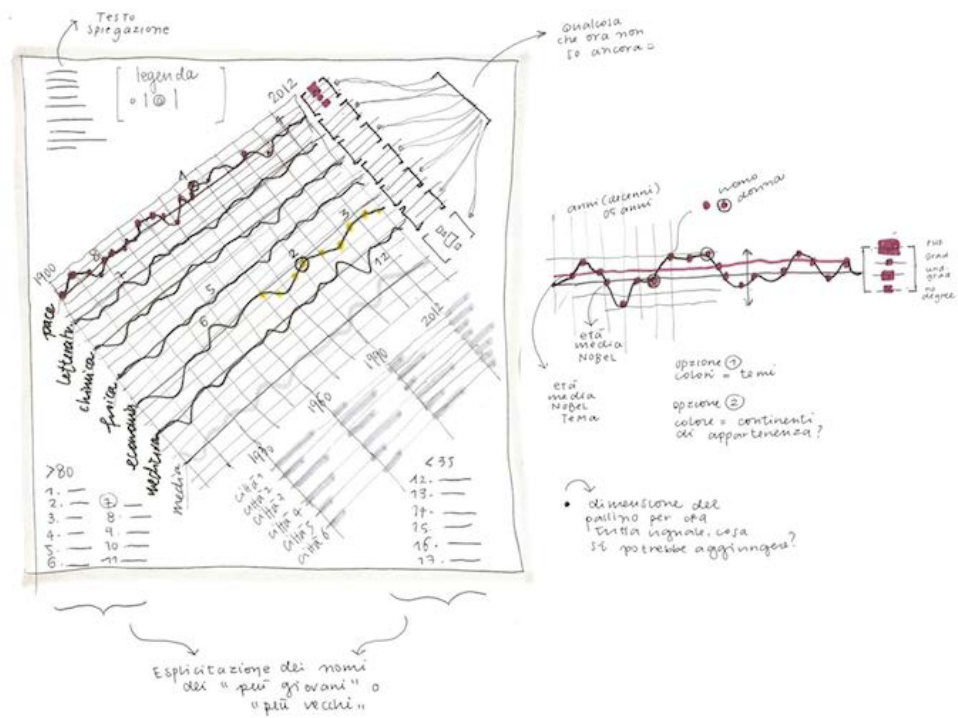 TESTO
spiegazione
Qualcosa
che ora non
so ancora
legenda
2012
1900
1
8
7
5
6
2
3
4
12
pace
letteratura
chimica
fisica
economia
medicina
media
1930
1960
1990
2012
città 1
città 2
città 3
città 4
città 5
città 6
>80
1.
2.
3.
4.
5.
6.
7
8.
9.
10
11
<35
12.
13.
14.
15.
16.
17.
Esplicitazione dei nomi
dei "più giovani" o
"più vecchi"
anni (decenni)
05 anni
uomo
donna
PHD
grad
und.
grad
no
degree
età
media
NOBEL
età
media
NOBEL
TEMA
opzione 1
colori = temi
opzione 2
colore = continenti
di appartenenza?
• dimensione del
pallino per ora
tutta uguale, cosa
si potrebbe aggiungere?